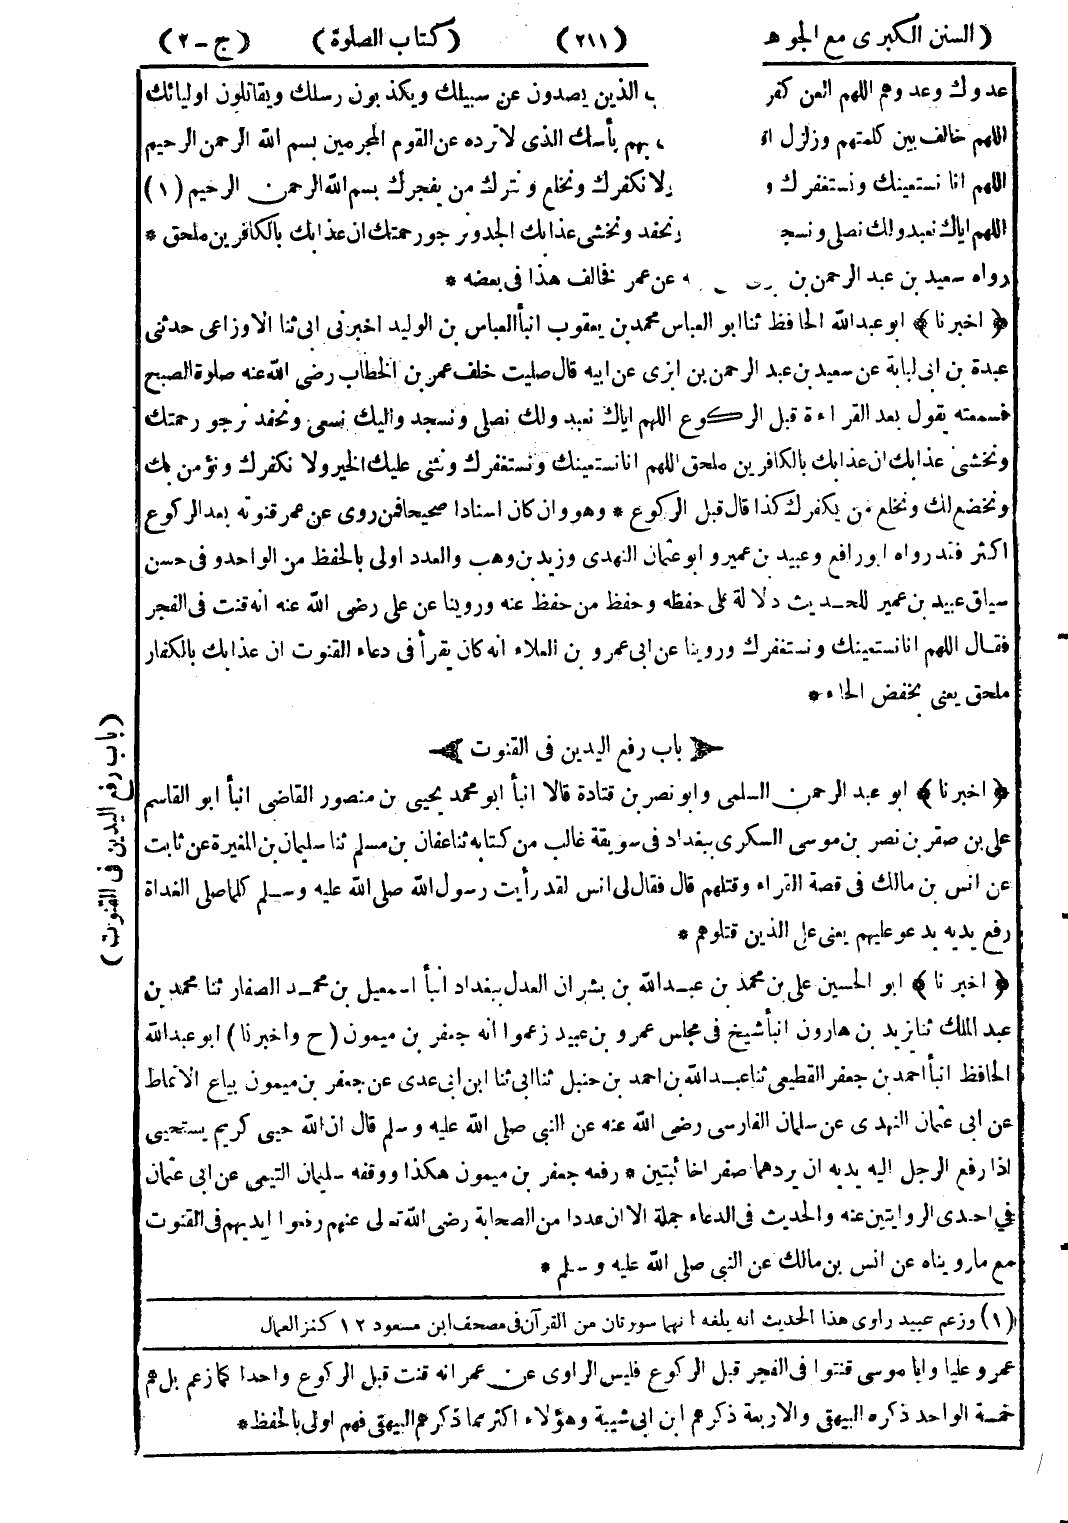 (السنن الكبرى مع الجوهـ (٢١١) (كتاب الصلوة) (ج-٢)
عدوك وعدوهم اللهم العن كفر الذين يصدون عن سبيلك ويكذبون رسلك ويقاتلون اوليائك
اللهم خالف بين كلمتهم وزلزل بهم بأسك الذى لا ترده عن القوم المجرمين بسم الله الرحمن الرحيم
اللهم انا نستعينك ونستغفرك و ولا نكفرك ونخلع ونترك من يفجرك بسم الله الرحمن الرحيم (١)
اللهم اياك نعبد ولك نصلى ونسجد ونحفد ونخشى عذابك الجد ونرجو رحمتك ان عذابك بالكافرين ملحق *
رواه سعيد بن عبد الرحمن بن عن عمر فخالف هذا فى بعضه *
﴿ اخبرنا ﴾ ابو عبدالله الحافظ ثنا ابو العباس محمد بن يعقوب انبأ العباس بن الوليد اخبرنى ابى ثنا الاوزاعى حدثنى
عبدة بن ابى لبابة عن سعيد بن عبد الرحمن بن ابزى عن ابيه قال صليت خلف عمر بن الخطاب رضى الله عنه صلوة الصبح
فسمعته يقول بعد القراءة قبل الركوع اللهم اياك نعبد ولك نصلى ونسجد واليك نسعى ونحفد نرجو رحمتك
ونخشى عذابك ان عذابك بالكافرين ملحق اللهم انا نستعينك ونستغفرك ونثنى عليك الخير ولا نكفرك ونؤمن بك
ونخضع لك ونخلع من يكفرك كذا قال قبل الركوع * وهو وان كان اسنادا صحيحا فمن روى عن عمر قنوته بعد الركوع
اكثر فقد رواه ابو رافع وعبيد بن عمير و ابو عثمان النهدى وزيد بن وهب والعدد اولى بالحفظ من الواحد وفى حسن
سياق عبيد بن عمير للحديث دلالة على حفظه وحفظ من حفظ عنه وروينا عن على رضى الله عنه انه قنت فى الفجر
فقال اللهم انا نستعينك ونستغفرك وروينا عن ابى عمرو بن العلاء انه كان يقرأ فى دعاء القنوت ان عذابك بالكفار
ملحق يعنى بخفض الحاء *
باب رفع اليدين فى القنوت
(باب رفع اليدين فى القنوت)
﴿ اخبرنا ﴾ ابو عبد الرحمن السلمى وابو نصر بن قتادة قالا انبأ ابو محمد يحيى بن منصور القاضى انبأ ابو القاسم
على بن صقر بن نصر بن موسى السكرى ببغداد فى سويقة غالب من كتابه ثنا عفان بن مسلم ثنا سليمان بن المغيرة عن ثابت
عن انس بن مالك فى قصة القراء وقتلهم قال فقال لى انس لقد رأيت رسول الله صلى الله عليه وسلم كلما صلى الغداة
رفع يديه يدعو عليهم يعنى على الذين قتلوهم *
﴿ اخبرنا ﴾ ابو الحسين على بن محمد بن عبدالله بن بشران العدل ببغداد انبأ اسمعيل بن محمد الصفار ثنا محمد بن
عبد الملك ثنا يزيد بن هارون انبأ شيخ فى مجلس عمرو بن عبيد زعموا انه جعفر بن ميمون (ح واخبرنا) ابو عبدالله
الحافظ انبأ احمد بن جعفر القطيعى ثنا عبدالله بن احمد بن حنبل ثنا ابى ثنا ابن ابى عدى عن جعفر بن ميمون بياع الانماط
عن ابى عثمان النهدى عن سلمان الفارسى رضى الله عنه عن النبى صلى الله عليه وسلم قال ان الله حيى كريم يستحيى
اذا رفع الرجل اليه يديه ان يردهما صفرا خائبتين * رفعه جعفر بن ميمون هكذا ووقفه سليمان التيمى عن ابى عثمان
فى احدى الروايتين عنه والحديث فى الدعاء جملة الا ان عددا من الصحابة رضى الله تعالى عنهم رفعوا ايديهم فى القنوت
مع ما رويناه عن انس بن مالك عن النبى صلى الله عليه وسلم *
(١) وزعم عبيد راوى هذا الحديث انه بلغه انهما سورتان من القرآن فى مصحف ابن مسعود ١٢ كنز العمال
عمر وعليا وابا موسى قنتوا فى الفجر قبل الركوع فليس الراوى عن عمر انه قنت قبل الركوع واحدا كما زعم بل هم
خمسة الواحد ذكره البيهقى والاربعة ذكرهم ابن ابى شيبة وهؤلاء اكثر مما ذكرهم البيهقى فهم اولى بالحفظ *